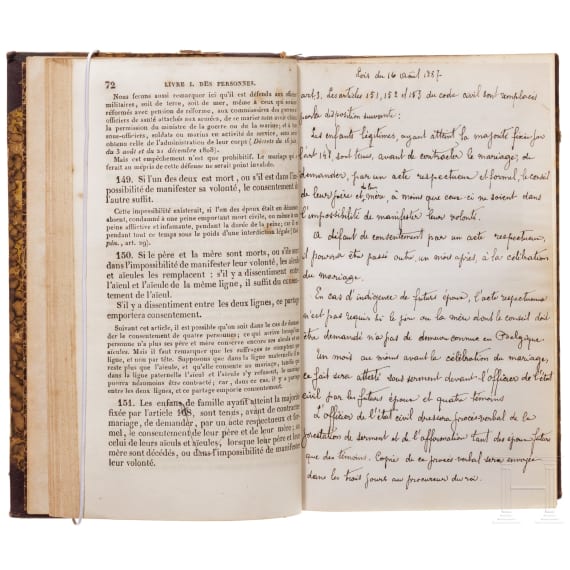 72 LIVRE I. DES PERSONNES.
Nous ferons aussi remarquer ici qu'il est défendu aux officiers
militaires, soit de terre, soit de mer, même à ceux qui sont
réformés avec pension de réforme, aux commissaires des guerres,
officiers de santé attachés aux armées, de se marier sans avoir obtenu
la permission du ministre de la guerre ou de la marine; et à tous
sous-officiers, soldats ou marins en activité de service, sans avoir
obtenu celle de l'administration de leur corps (Décrets du 16 juin,
du 3 août et du 21 décembre 1808).
Mais cet empêchement n'est que prohibitif. Le mariage qui se
ferait au mépris de cette défense ne serait point invalide.
149. Si l'un des deux est mort, ou s'il est dans l'im-
possibilité de manifester sa volonté, le consentement de
l'autre suffit.
Cette impossibilité existerait, si l'un des époux était en démence,
absent, condamné à une peine emportant mort civile, ou même à une
peine afflictive et infamante, pendant la durée de la peine; car il est
pendant tout ce temps sous le poids d'une interdiction légale
pén., art. 29).
150. Si le père et la mère sont morts, ou s'ils sont
dans l'impossibilité de manifester leur volonté, les aïeuls
et aïeules les remplacent; s'il y a dissentiment entre
l'aïeul et l'aïeule de la même ligne, il suffit du consen-
tement de l'aïeul.
S'il y a dissentiment entre les deux lignes, ce partage
emportera consentement.
Suivant cet article, il est possible qu'on soit dans le cas de deman-
der le consentement de quatre personnes; ce qui arrive lorsqu'une
personne n'a plus ses père et mère et conserve encore ses aïeuls et
aïeules. Mais il faut remarquer que les suffrages se comptent par
ligne, et non par tête. Supposons que dans la ligne maternelle il ne
reste plus que l'aïeule, et qu'elle consente au mariage, tandis que
dans la ligne paternelle l'aïeul et l'aïeule s'y refusent, le mariage
pourra néanmoins être contracté; car, dans ce cas, il y a partage
entre les deux lignes, et ce partage emporte consentement.
151. Les enfans de famille ayant atteint la majorité
fixée par l'article 148, sont tenus, avant de contracter
mariage, de demander, par un acte respectueux et for-
mel, le consentement de leur père et de leur mère, ou
celui de leurs aïeuls et aïeules, lorsque leur père et leur
mère sont décédés, ou dans l'impossibilité de manifester
leur volonté.
Lois du 16 Août 1887.
art 3. Les articles 151, 152 et 153 du code civil sont remplacés
par la disposition suivante :
Les enfants légitimes, ayant atteint la majorité fixée par
l'art 148, sont tenus, avant de contracter le mariage, de
demander, par un acte respectueux et formel, le conseil
de leur père et de leur mère, à moins que ceux ci ne soient dans
l'impossibilité de manifester leur volonté.
A défaut de consentement par un acte respectueux,
il pourra être passé outre, un mois après, à la célébration
du mariage.
En cas d'indigence de futurs époux, l'acte respectueux
n'est pas requis si le père ou la mère dont le conseil doit
être demandé n'a pas de demeure connue en Belgique
Un mois au moins avant la célébration du mariage,
ce fait sera attesté sous serment devant l'officier de l'état
civil par les futurs époux et quatre témoins
L'officier de l'état civil dressera procès-verbal de la
prestation de serment et de l'affirmation tant des époux futurs
que des témoins. Copie de ce procès-verbal sera envoyée
dans les trois jours au procureur du roi.